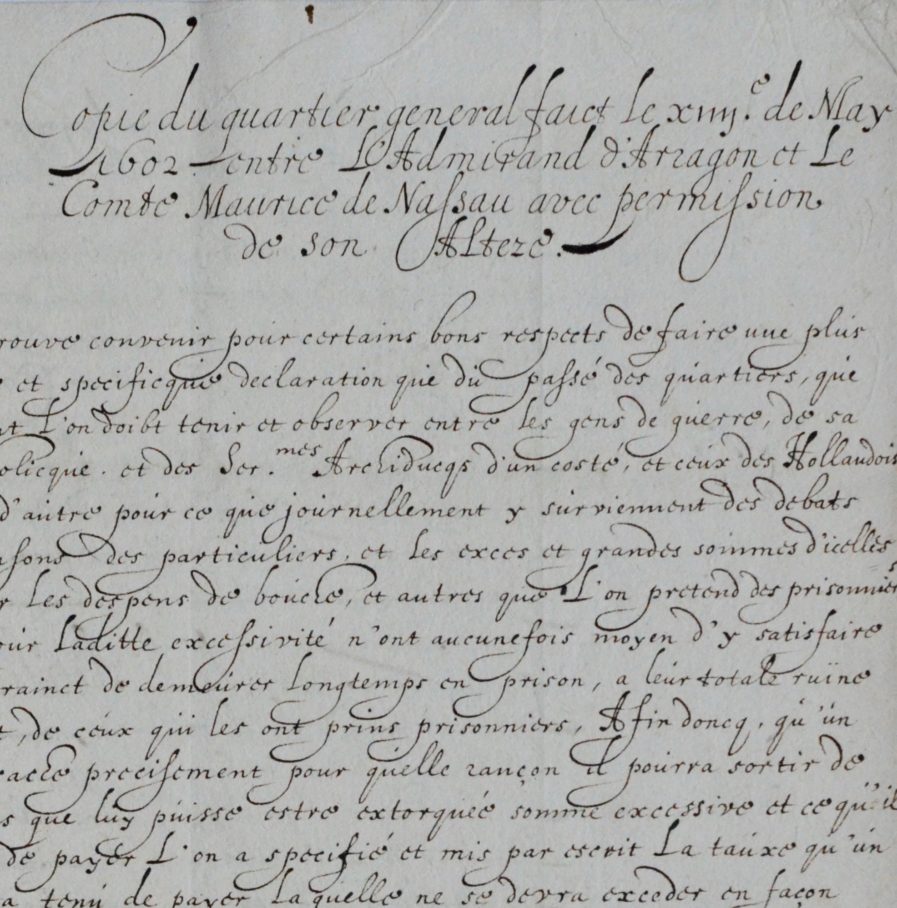 Copie du quartier general faict le xiiij.e de May
1602 entre L'Admirand d'Arragon et Le
Comte Maurice de Nassau avec permission
de son Alteze.
rouve convenir pour certains bons respects de faire une plus
et specificque declaration que du passé des quartiers, que
nt l'on doibt tenir et observer entre les gens de guerre, de sa
olicque. et des Ser.mes Archiducqs d'un costé, et ceux des Hollandois
d'autre pour ce que journellement y surviennent des debats
nsons des particuliers, et les exces et grandes sommes d'icelles
r les despens de bouche, et autres que l'on pretend des prisonniers
our Laditte excessivité n'ont aucunefois moyen d'y satisfaire
rainct de demeurer longtemps en prison, a leur totale ruine
t, de ceux qui les ont prins prisonniers, Afin doncq, qu'un
ache precisement pour quelle rançon il pourra sortir de
s que luy puisse estre extorquée somme excessive et ce qu'il
de payer L'on a specifié et mis par escrit La tauxe qu'un
a tenu de payer laquelle ne se devra exceder en façon